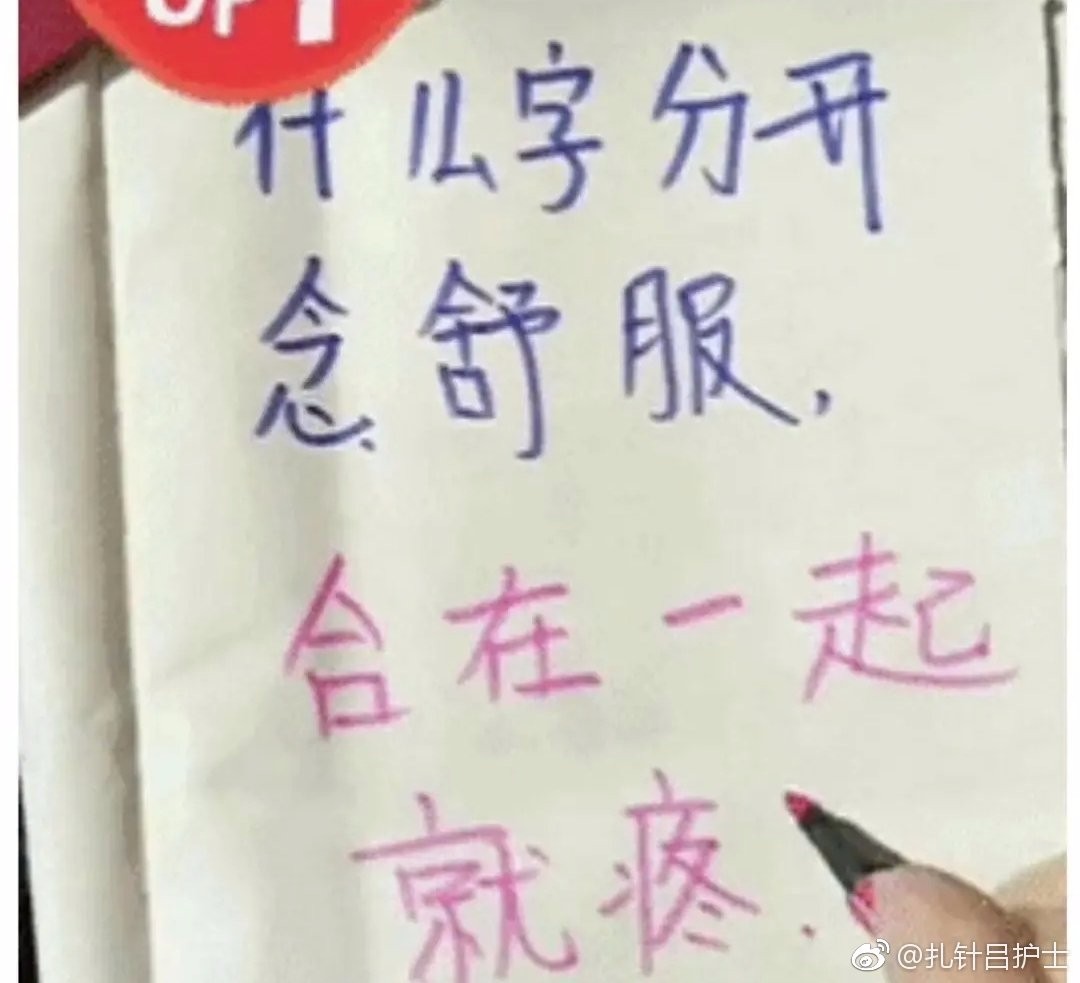 UP1
什么字分开
念舒服,
合在一起
就疼.
@扎针吕护士